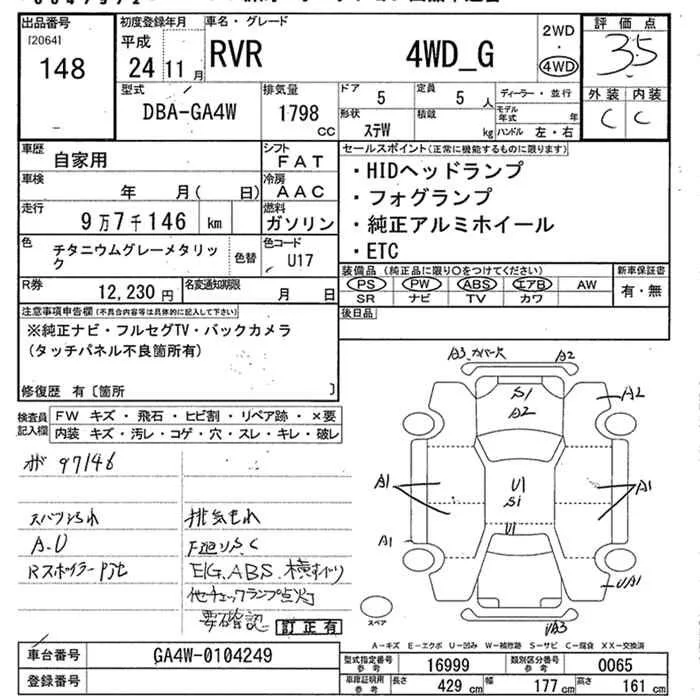 出品番号
[2064]
148
初度登録年月
平成
24 11 月
車名・グレード
RVR 4WD_G
2WD
・
4WD
評価点
3.5
外装 内装
C C
型式
DBA-GA4W
排気量
1798 CC
ドア 5
定員 5 人
形状 ステW
積載 kg
ディーラー・並行
モデル年式 年
ハンドル 左・右
車歴 自家用
シフト FAT
車検 年 月( 日)
冷房 AAC
走行 9万7千146 km
燃料 ガソリン
色 チタニウムグレーメタリック
色替
色コード U17
R券 12,230 円
名変通知期限 月 日
セールスポイント(正常に機能するものに限ります)
・HIDヘッドランプ
・フォグランプ
・純正アルミホイール
・ETC
装備品 (純正品に限り○をつけてください)
PS PW ABS エアB AW
SR ナビ TV カワ
新車保証書
有・無
後日品
注意事項申告欄 (不具合内容等は具体的に記入して下さい)
※純正ナビ・フルセグTV・バックカメラ
(タッチパネル不良箇所有)
修復歴 有〔箇所 〕
検査員記入欄
FW キズ・飛石・ヒビ割・リペア跡・×要
内装 キズ・汚レ・コゲ・穴・スレ・キレ・破レ
97146
A.U
排気もれ
下廻りS.C
E/G.ABS.横すべり
他チェックランプ点灯
要確認
訂正有
A3 カバー欠 A2
S1
A2
A2
A1
U1
S1
A1
A1
U1
UA1
UA3
スペア
A-キズ E-エクボ U-凹み W-補修跡 S-サビ C-腐食 XX-交換済
車台番号 GA4W-0104249
登録番号
型式指定番号 参考 16999
類別区分番号 参考 0065
車庫証明用 参考 長さ 429 cm 幅 177 cm 高さ 161 cm